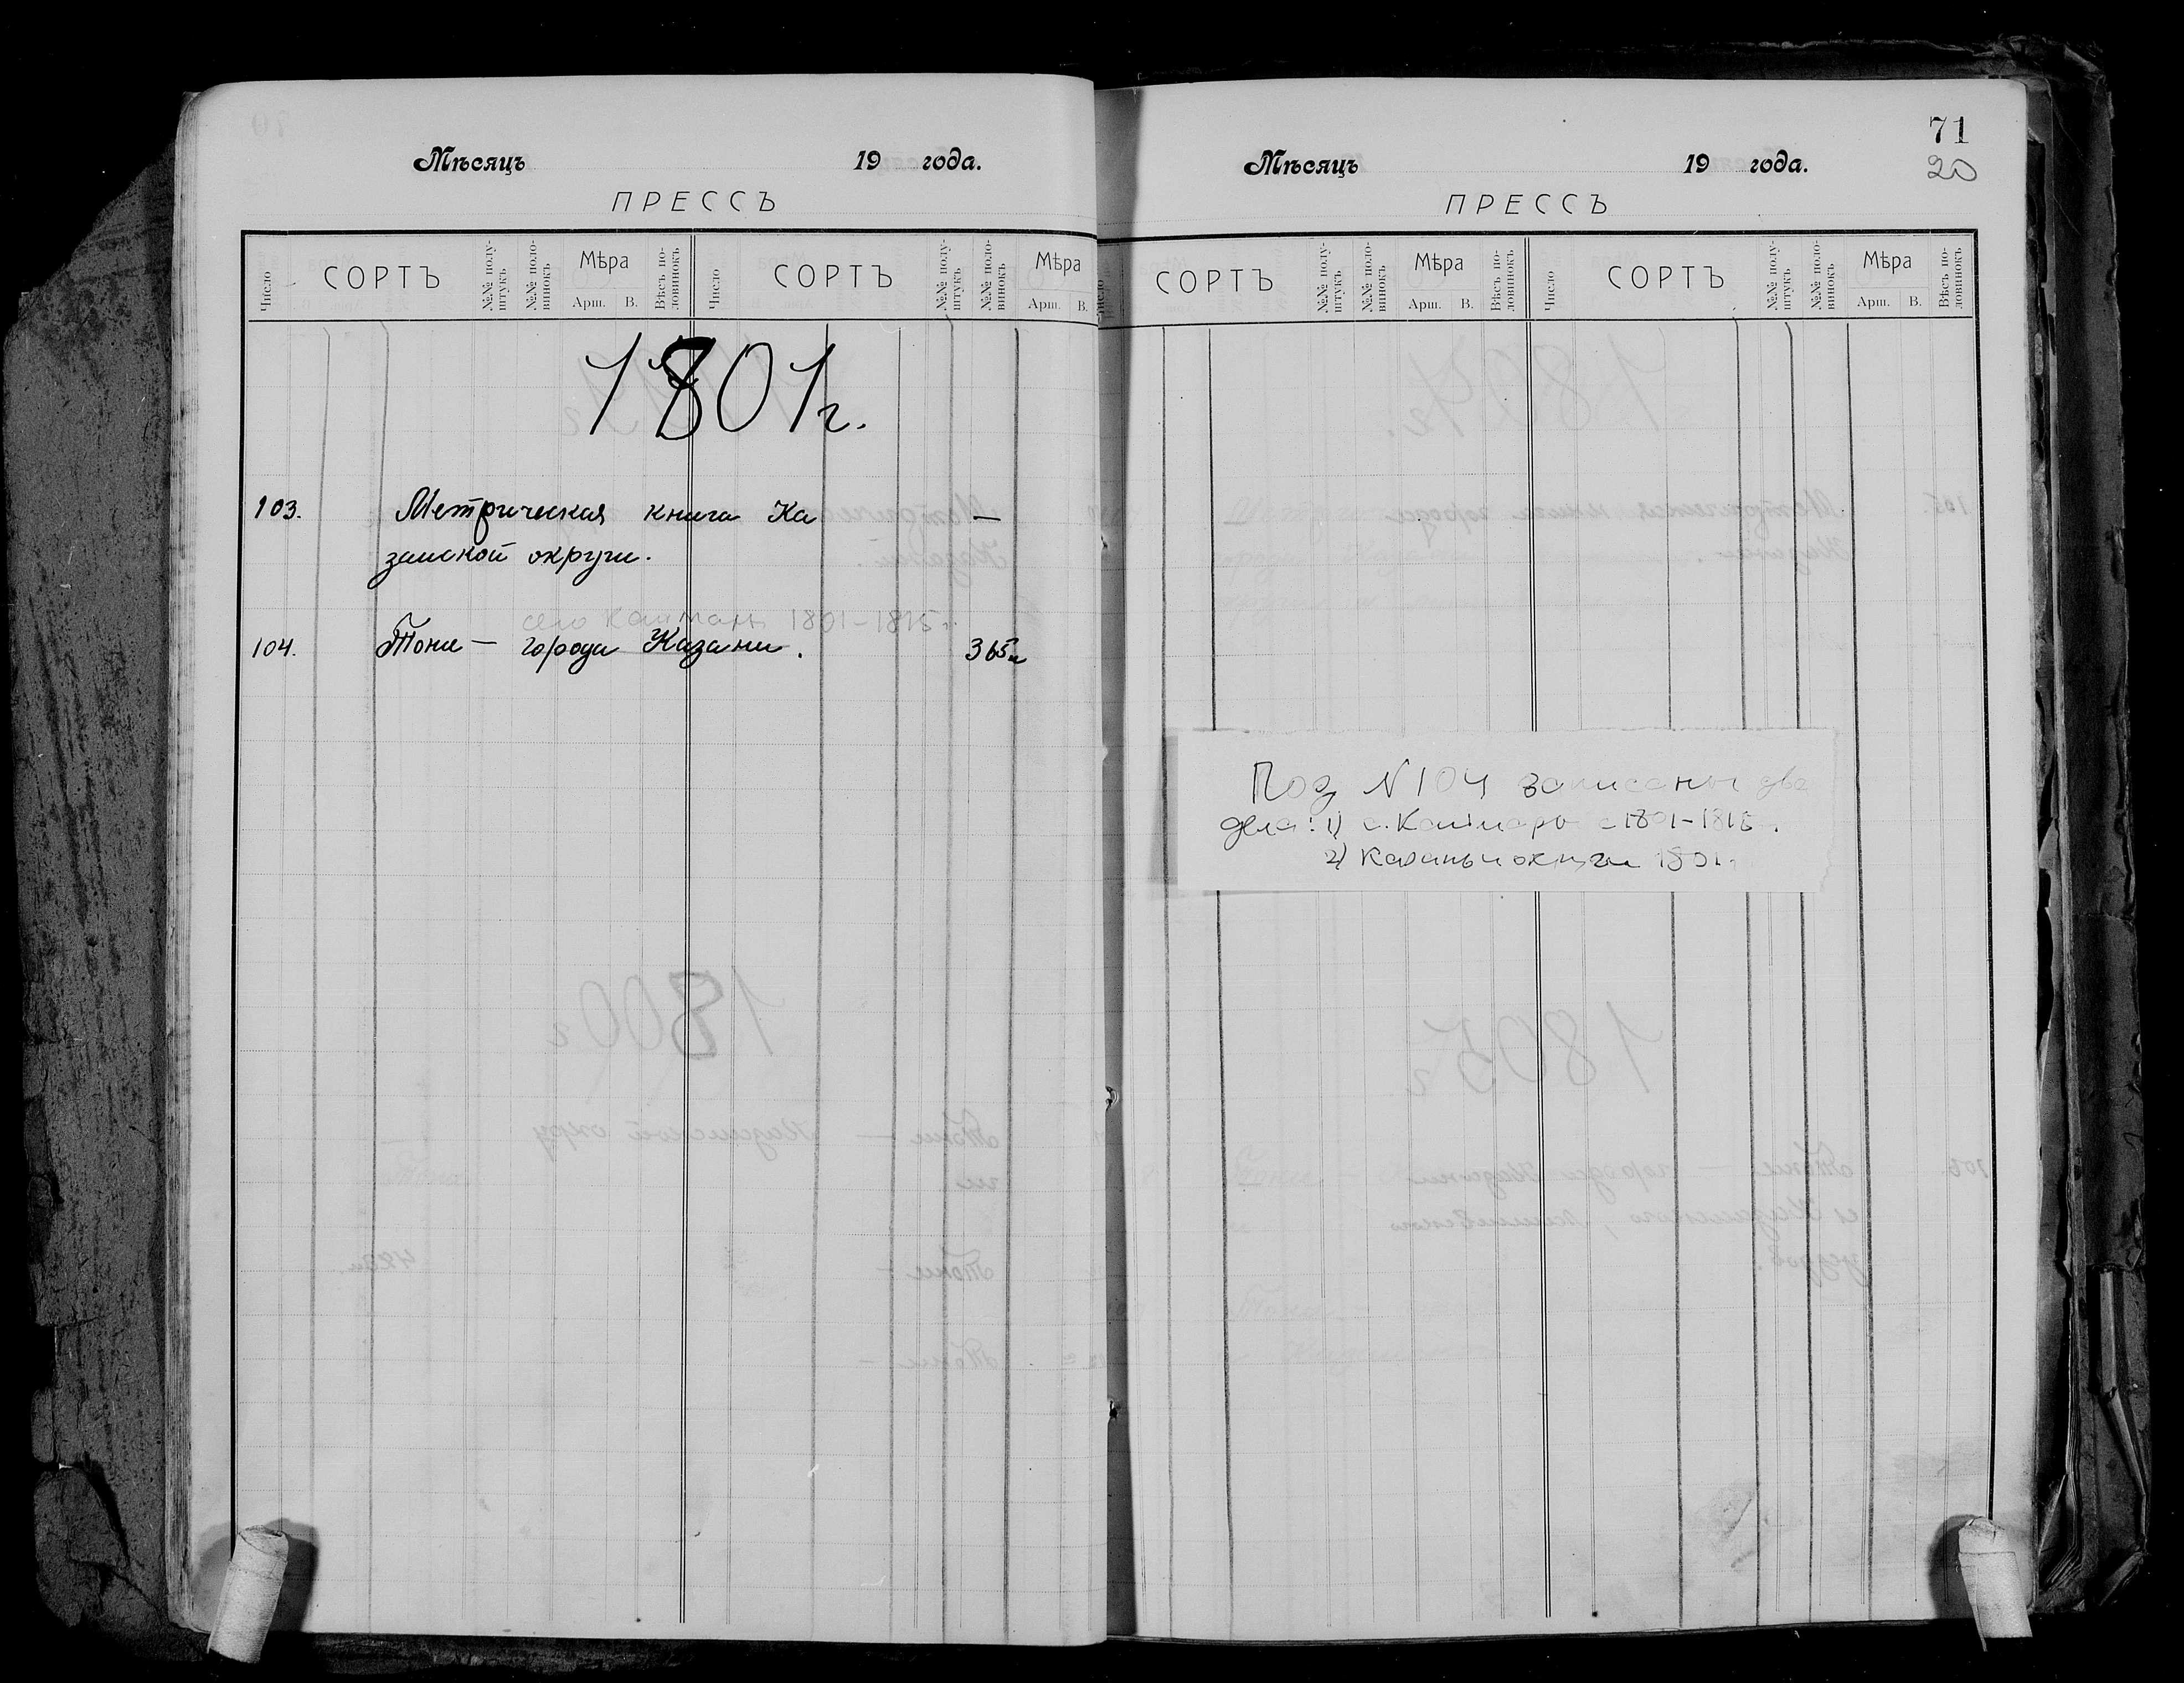 Мѣсяцъ 19 года.
ПРЕССЪ
Число СОРТЪ №№ полуштукъ №№ половинокъ Мѣра Арш. В. Вѣсъ половинокъ Число СОРТЪ №№ полуштукъ №№ половинокъ Мѣра Арш. В.
1801 г.
103. Метрическая книга Ка —
занской округи.
село Каймары 1801-1815 г.
104. Тоже — города Казани. 365 л
71
20
Мѣсяцъ 19 года.
ПРЕССЪ
Число СОРТЪ №№ полуштукъ №№ половинокъ Мѣра Арш. В. Вѣсъ половинокъ Число СОРТЪ №№ полуштукъ №№ половинокъ Мѣра Арш. В. Вѣсъ половинокъ
Под N 104 записаны два
дела: 1) с. Каймары с 1801-1815 г.
2) Казань и округи 1801 г